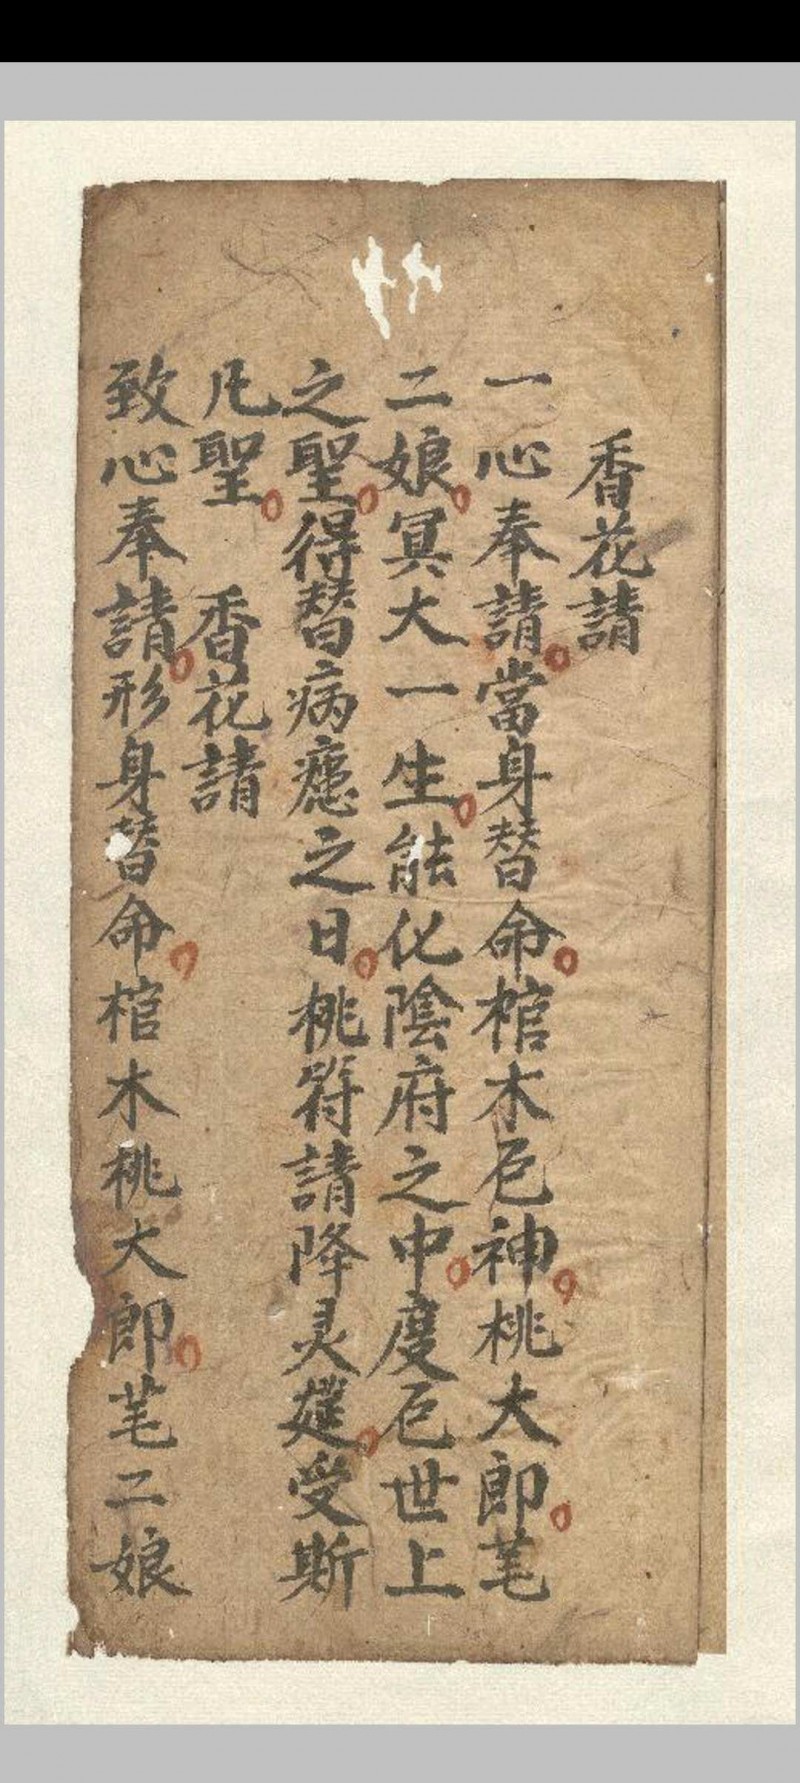 香花請
一心奉請當身替命棺木巨神桃大郎芼
二娘冥大一生能化陰府之中度巨世上
之聖得替病之日桃符請降灵筵受斯
凡聖 香花請
致心奉請形身替命棺木桃大郎芼二娘